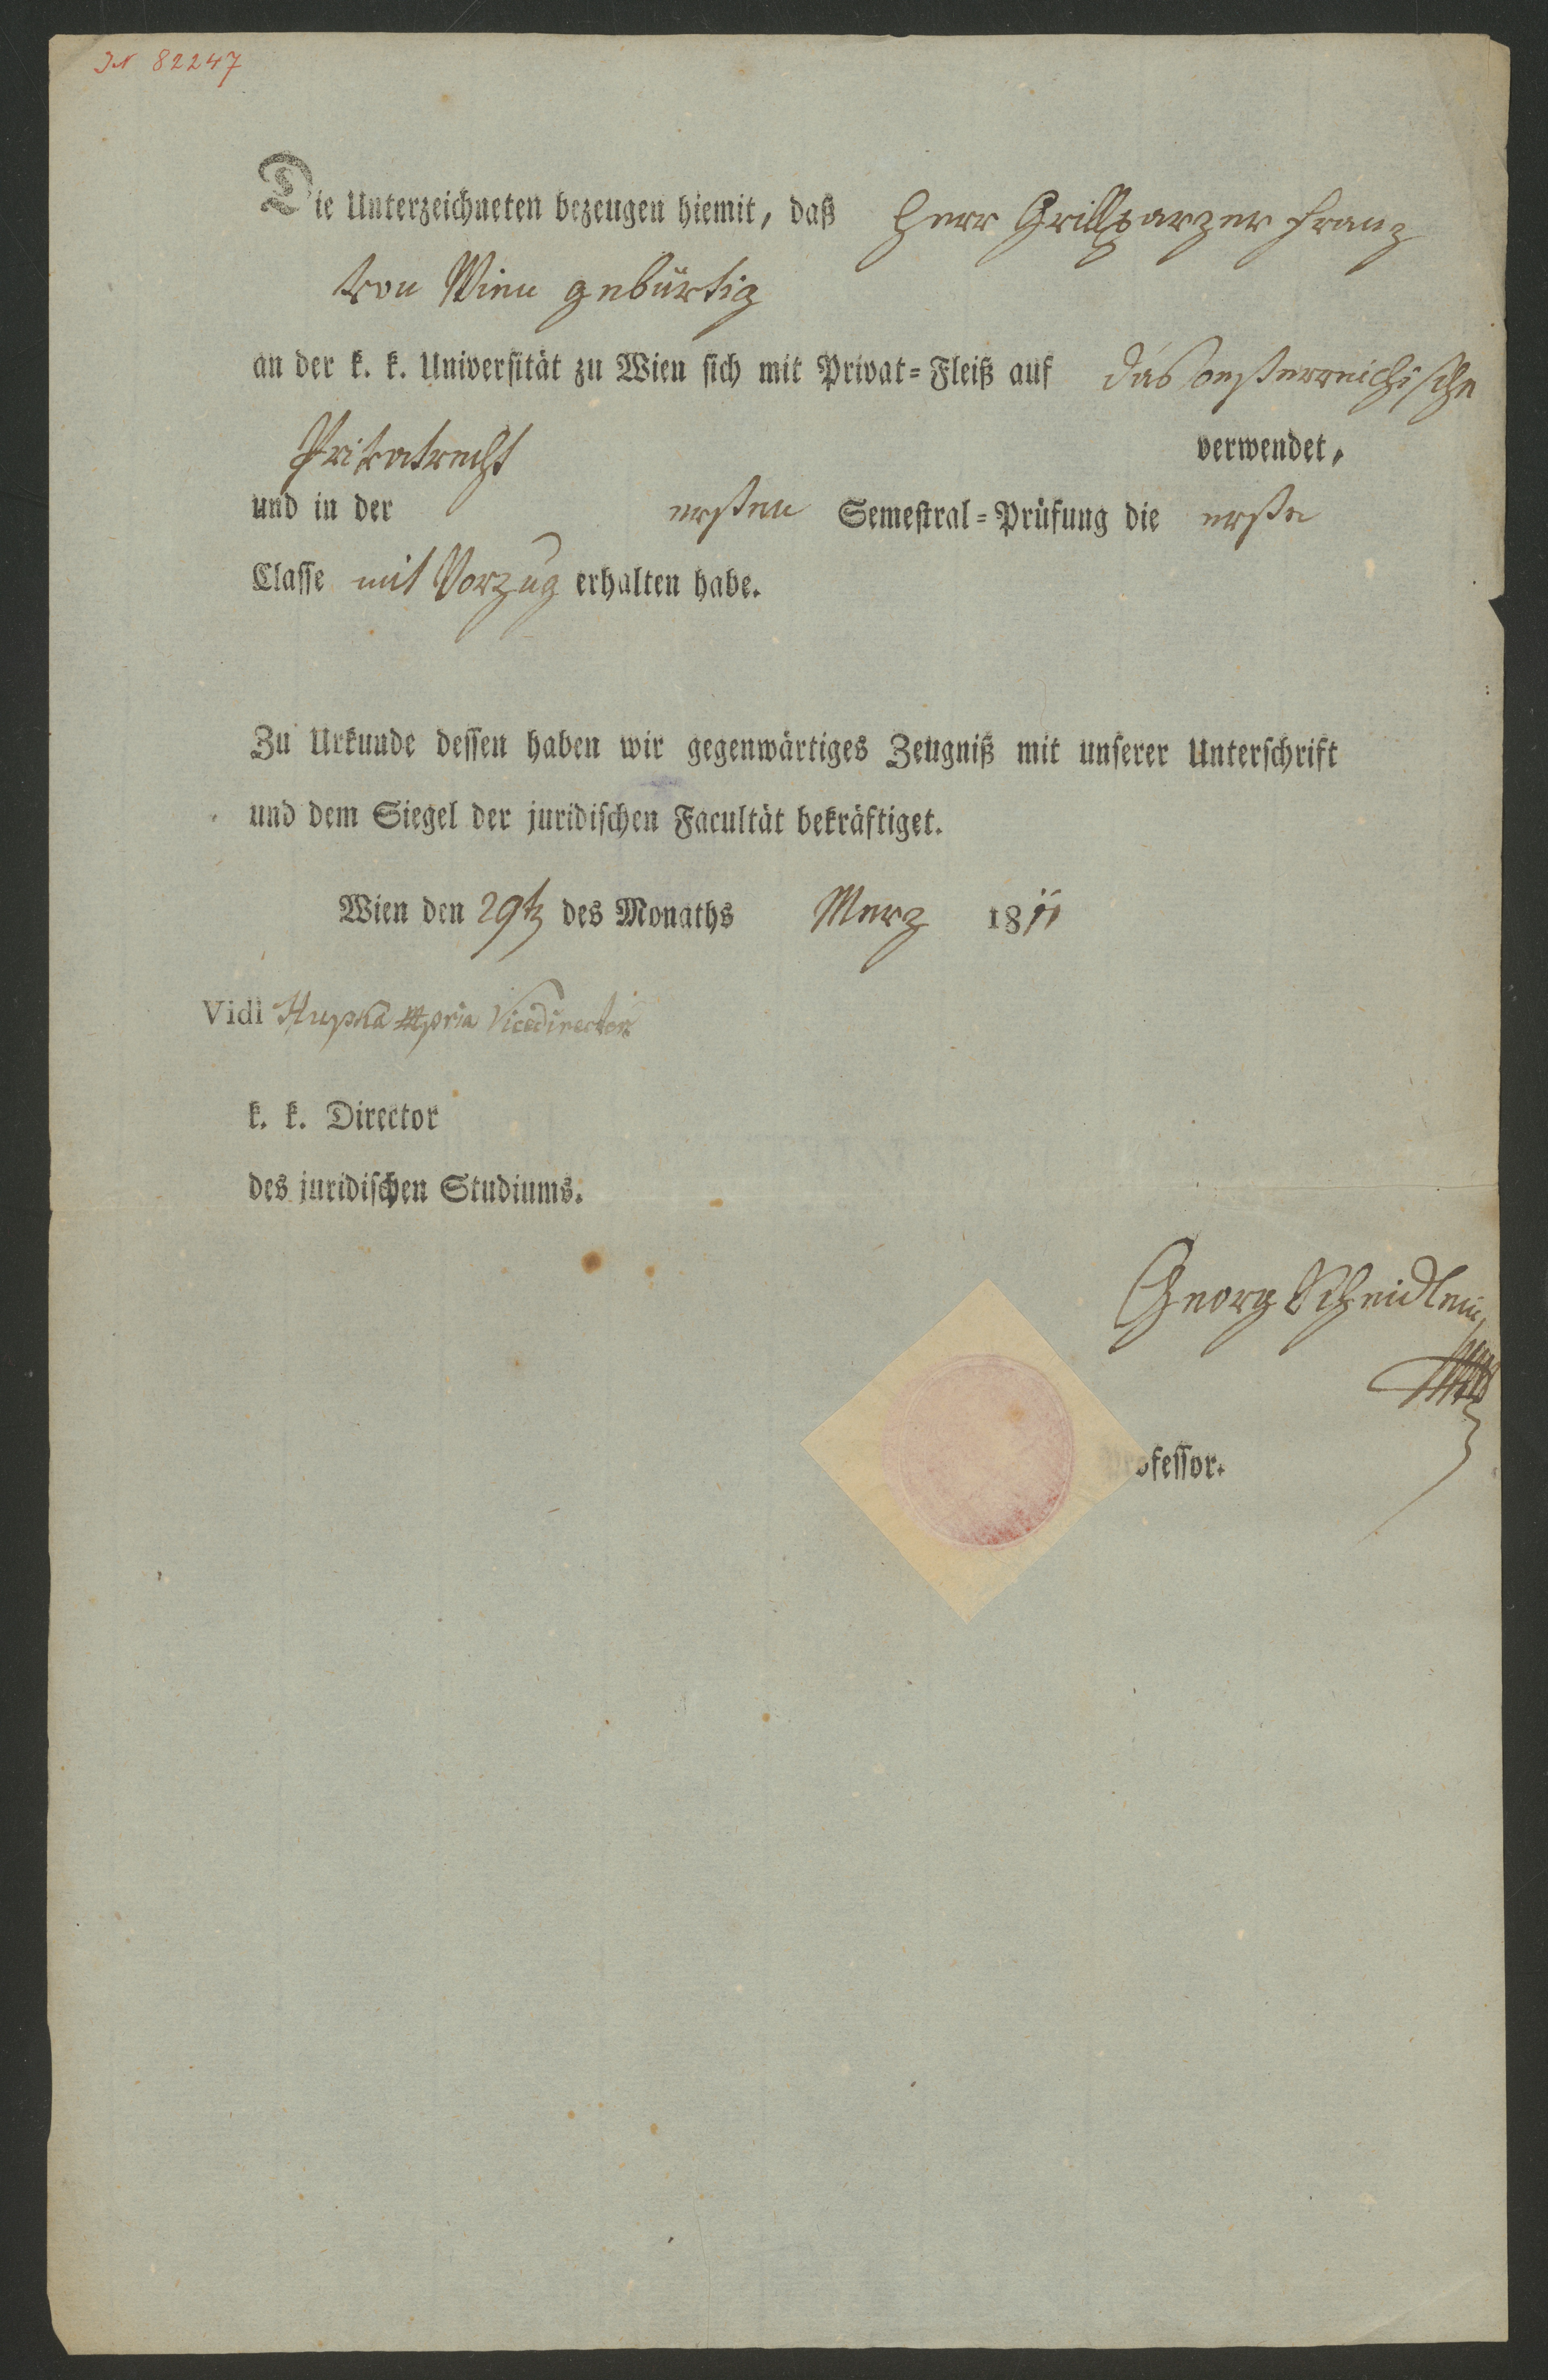 IN 82247
Die Unterzeichneten bezeugen hiemit, daß Herr Grillparzer Franz
von Wien gebürtig
an der k. k. Universität zu Wien sich mit Privat-Fleiß auf das oesterreichische
Privatrecht verwendet,
und in der ersten Semestral-Prüfung die erste
Classe mit Vorzug erhalten habe.
Zu Urkunde dessen haben wir gegenwärtiges Zeugniß mit unserer Unterschrift
und dem Siegel der juridischen Facultät bekräftiget.
Wien den 29t des Monaths Merz 1811
Vidi Hupka mpria Vicedirector
k. k. Director
des juridischen Studiums.
Georg Scheidlein
Professor.